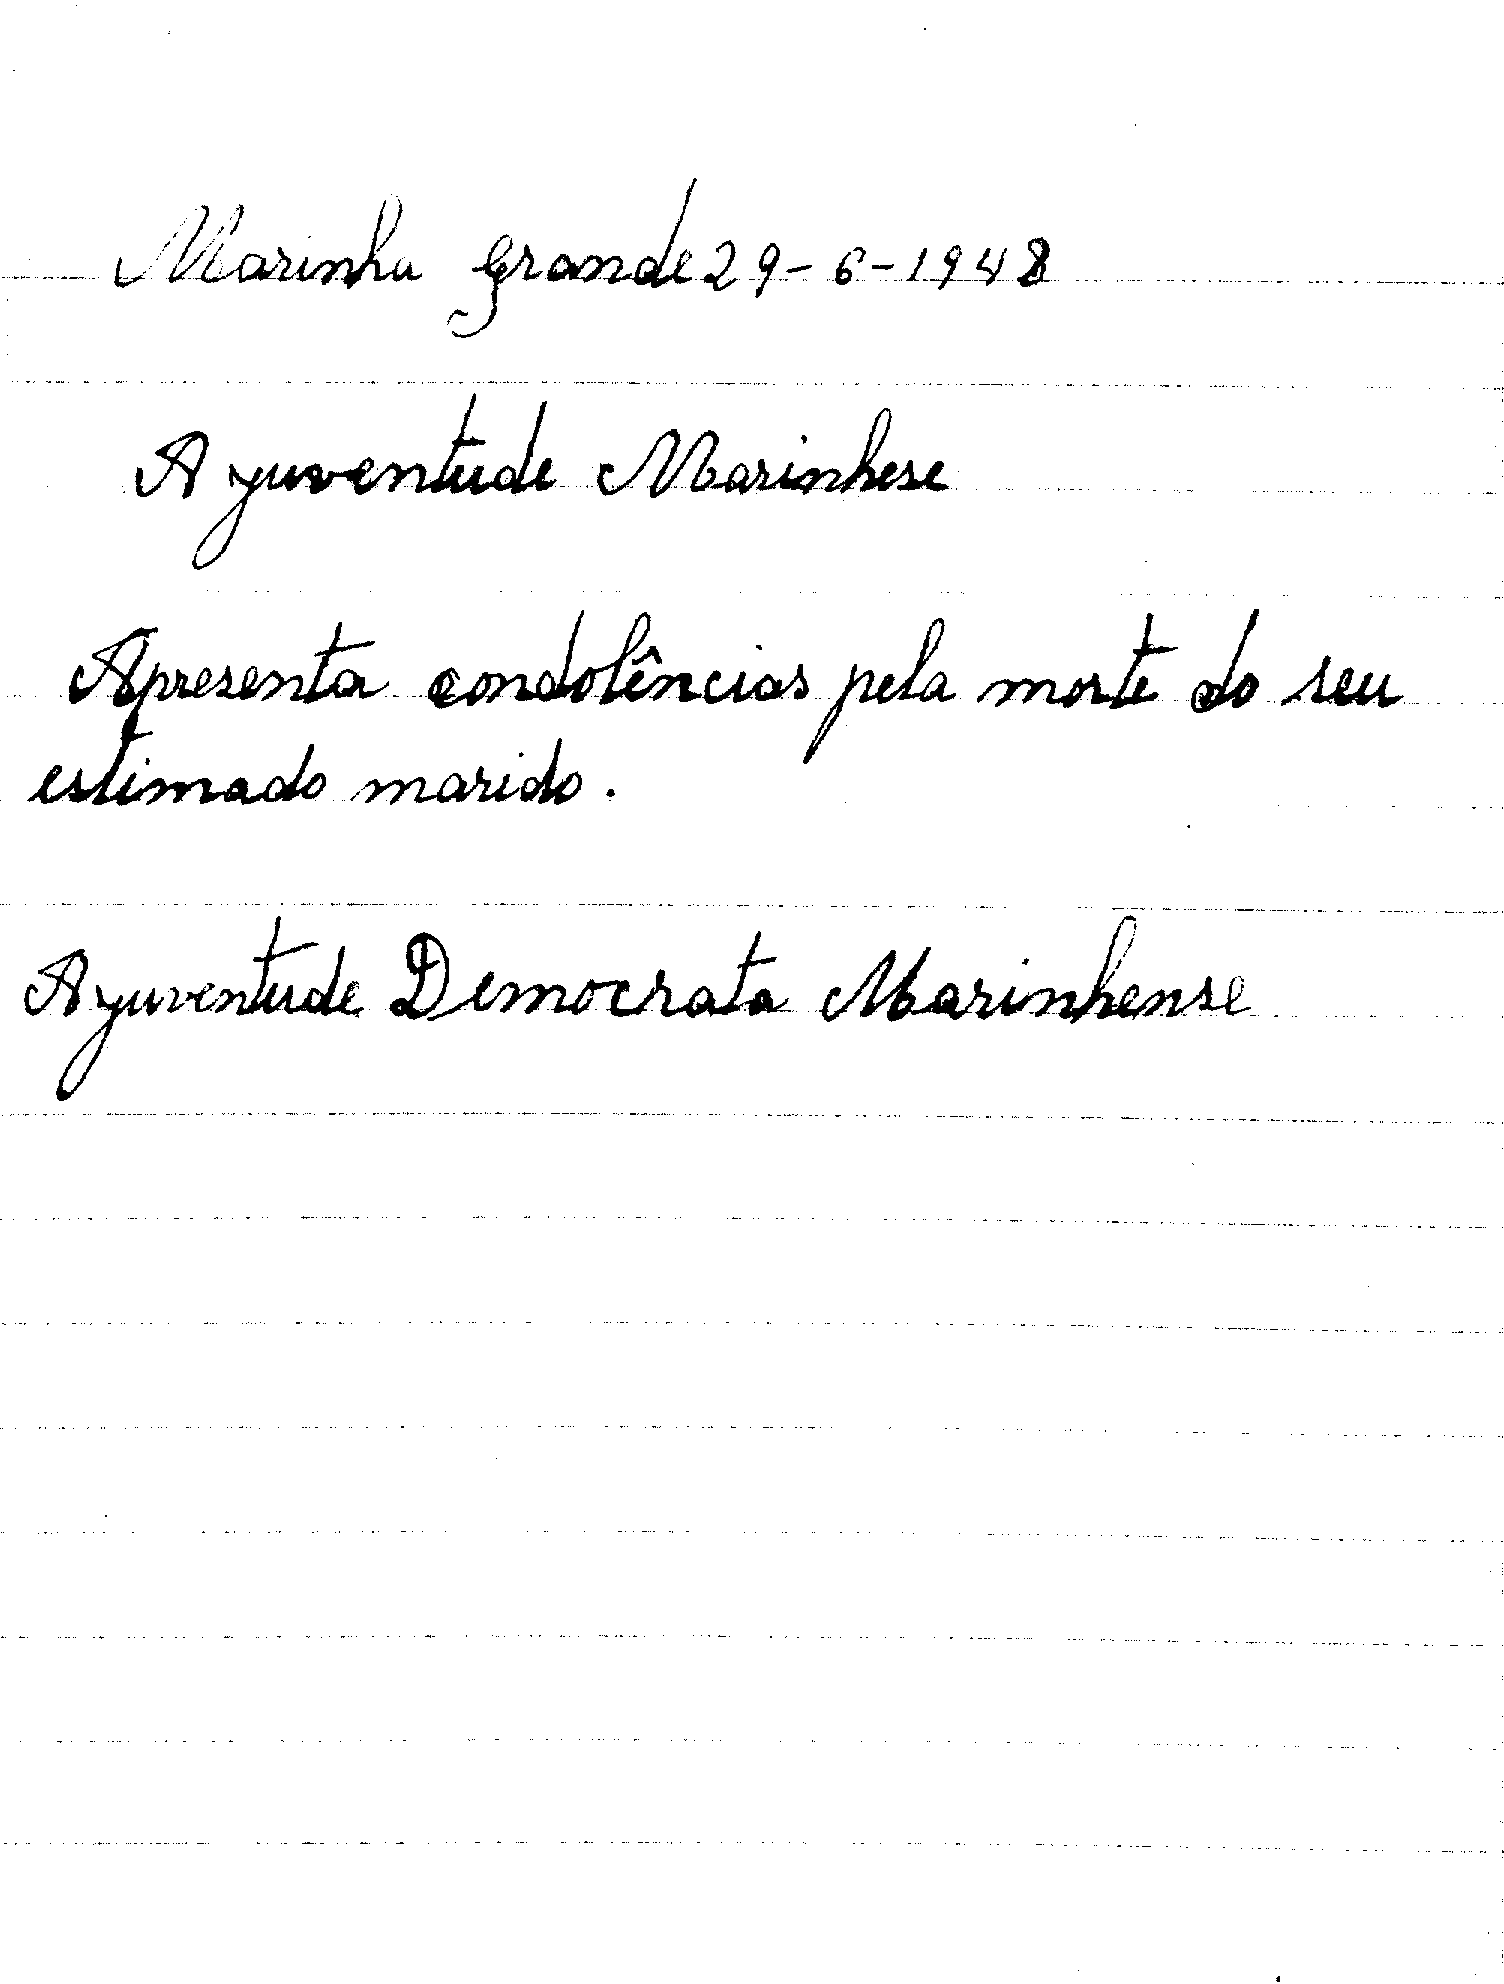 Marinha Grande 29-6-1948
A juventude Marinhese
Apresenta condolências pela morte do seu
estimado marido.
A juventude Democrata Marinhense